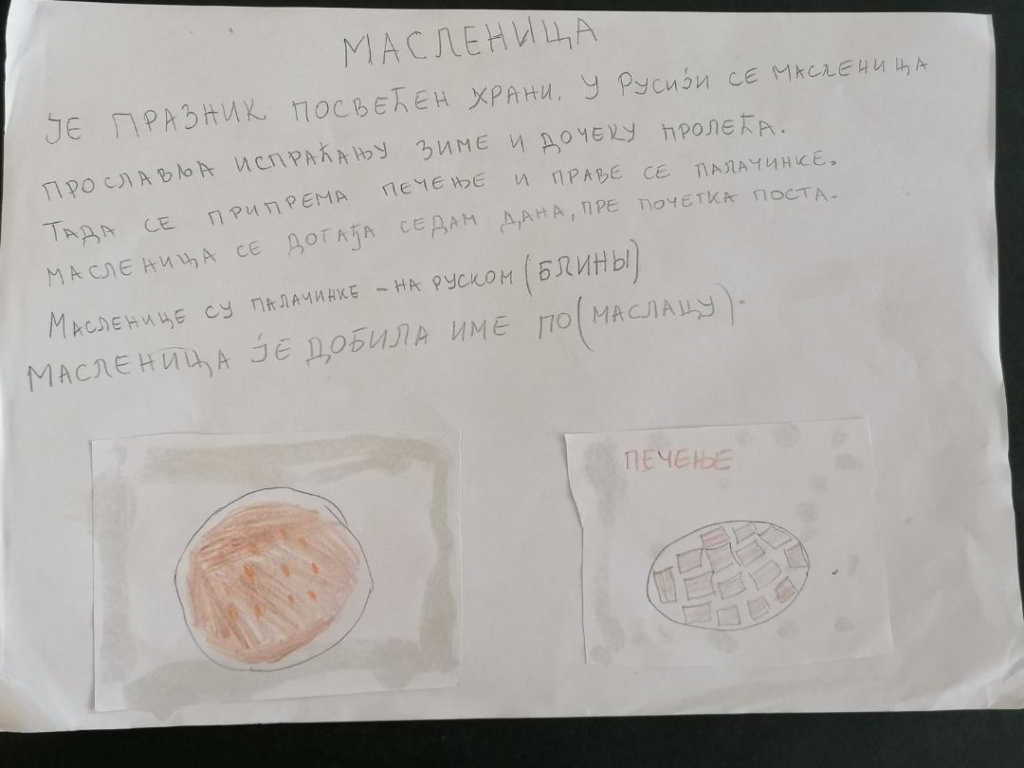 МАСЛЕНИЦА
ЈЕ ПРАЗНИК ПОСВЕЋЕН ХРАНИ. У РУСИЈИ СЕ МАСЛЕНИЦА
ПРОСЛАВЉА ИСПРАЋАЊУ ЗИМЕ И ДОЧЕКУ ПРОЛЕЋА.
ТАДА СЕ ПРИПРЕМА ПЕЧЕЊЕ И ПРАВЕ СЕ ПАЛАЧИНКЕ.
МАСЛЕНИЦА СЕ ДОГАЂА СЕДАМ ДАНА, ПРЕ ПОЧЕТКА ПОСТА.
МАСЛЕНИЦЕ СУ ПАЛАЧИНКЕ - НА РУСКОМ (БЛИНЫ)
МАСЛЕНИЦА ЈЕ ДОБИЛА ИМЕ ПО (МАСЛАЦУ).
ПЕЧЕЊЕ